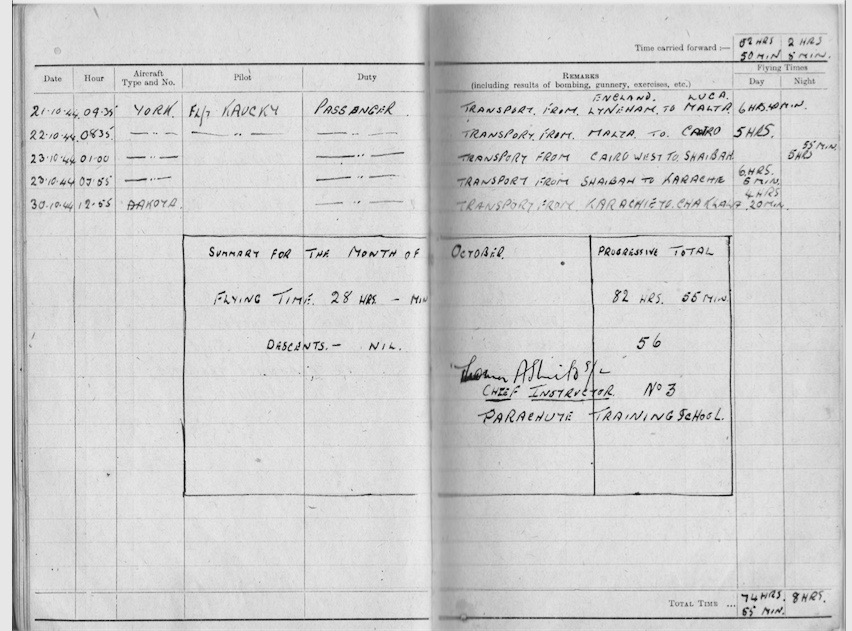 Time carried forward :— 52 HRS 2 HRS
50 MIN 5 MIN.
Date Hour Aircraft Type and No. Pilot Duty REMARKS (including results of bombing, gunnery, exercises, etc.) Flying Times Day Night
ENGLAND. LUCA.
21-10-44 09.35 YORK. FL/T KAUCKY PASSANGER. TRANSPORT FROM LYNEHAM. TO MALTA 6 HRS. 40 MIN.
22-10-44 0835 — " — — " — — " — TRANSPORT FROM. MALTA TO. CAIRO 5 HRS.
23-10-44 01.00 — " — — " — TRANSPORT FROM CAIRO WEST TO. SHAIBAH. 5 HRS 55 MIN.
23-10-44 07.55 — " — — " — TRANSPORT FROM SHAIBAH TO KARACHIE 6. HRS. 5 MIN.
30-10-44 12.55 DAKOTA. — " — TRANSPORT FROM. KARACHIE TO. 4 HRS 20 MIN.
SUMMARY FOR THE MONTH OF OCTOBER. PROGRESSIVE TOTAL
FLYING TIME. 28 HRS. — MIN 82 HRS. 55 MIN.
DESCENTS. — NIL. 56
CHIEF INSTRUCTOR. No 3
PARACHUTE TRAINING SCHOOL.
TOTAL TIME ... 74 HRS. 8 HRS.
55 MIN.